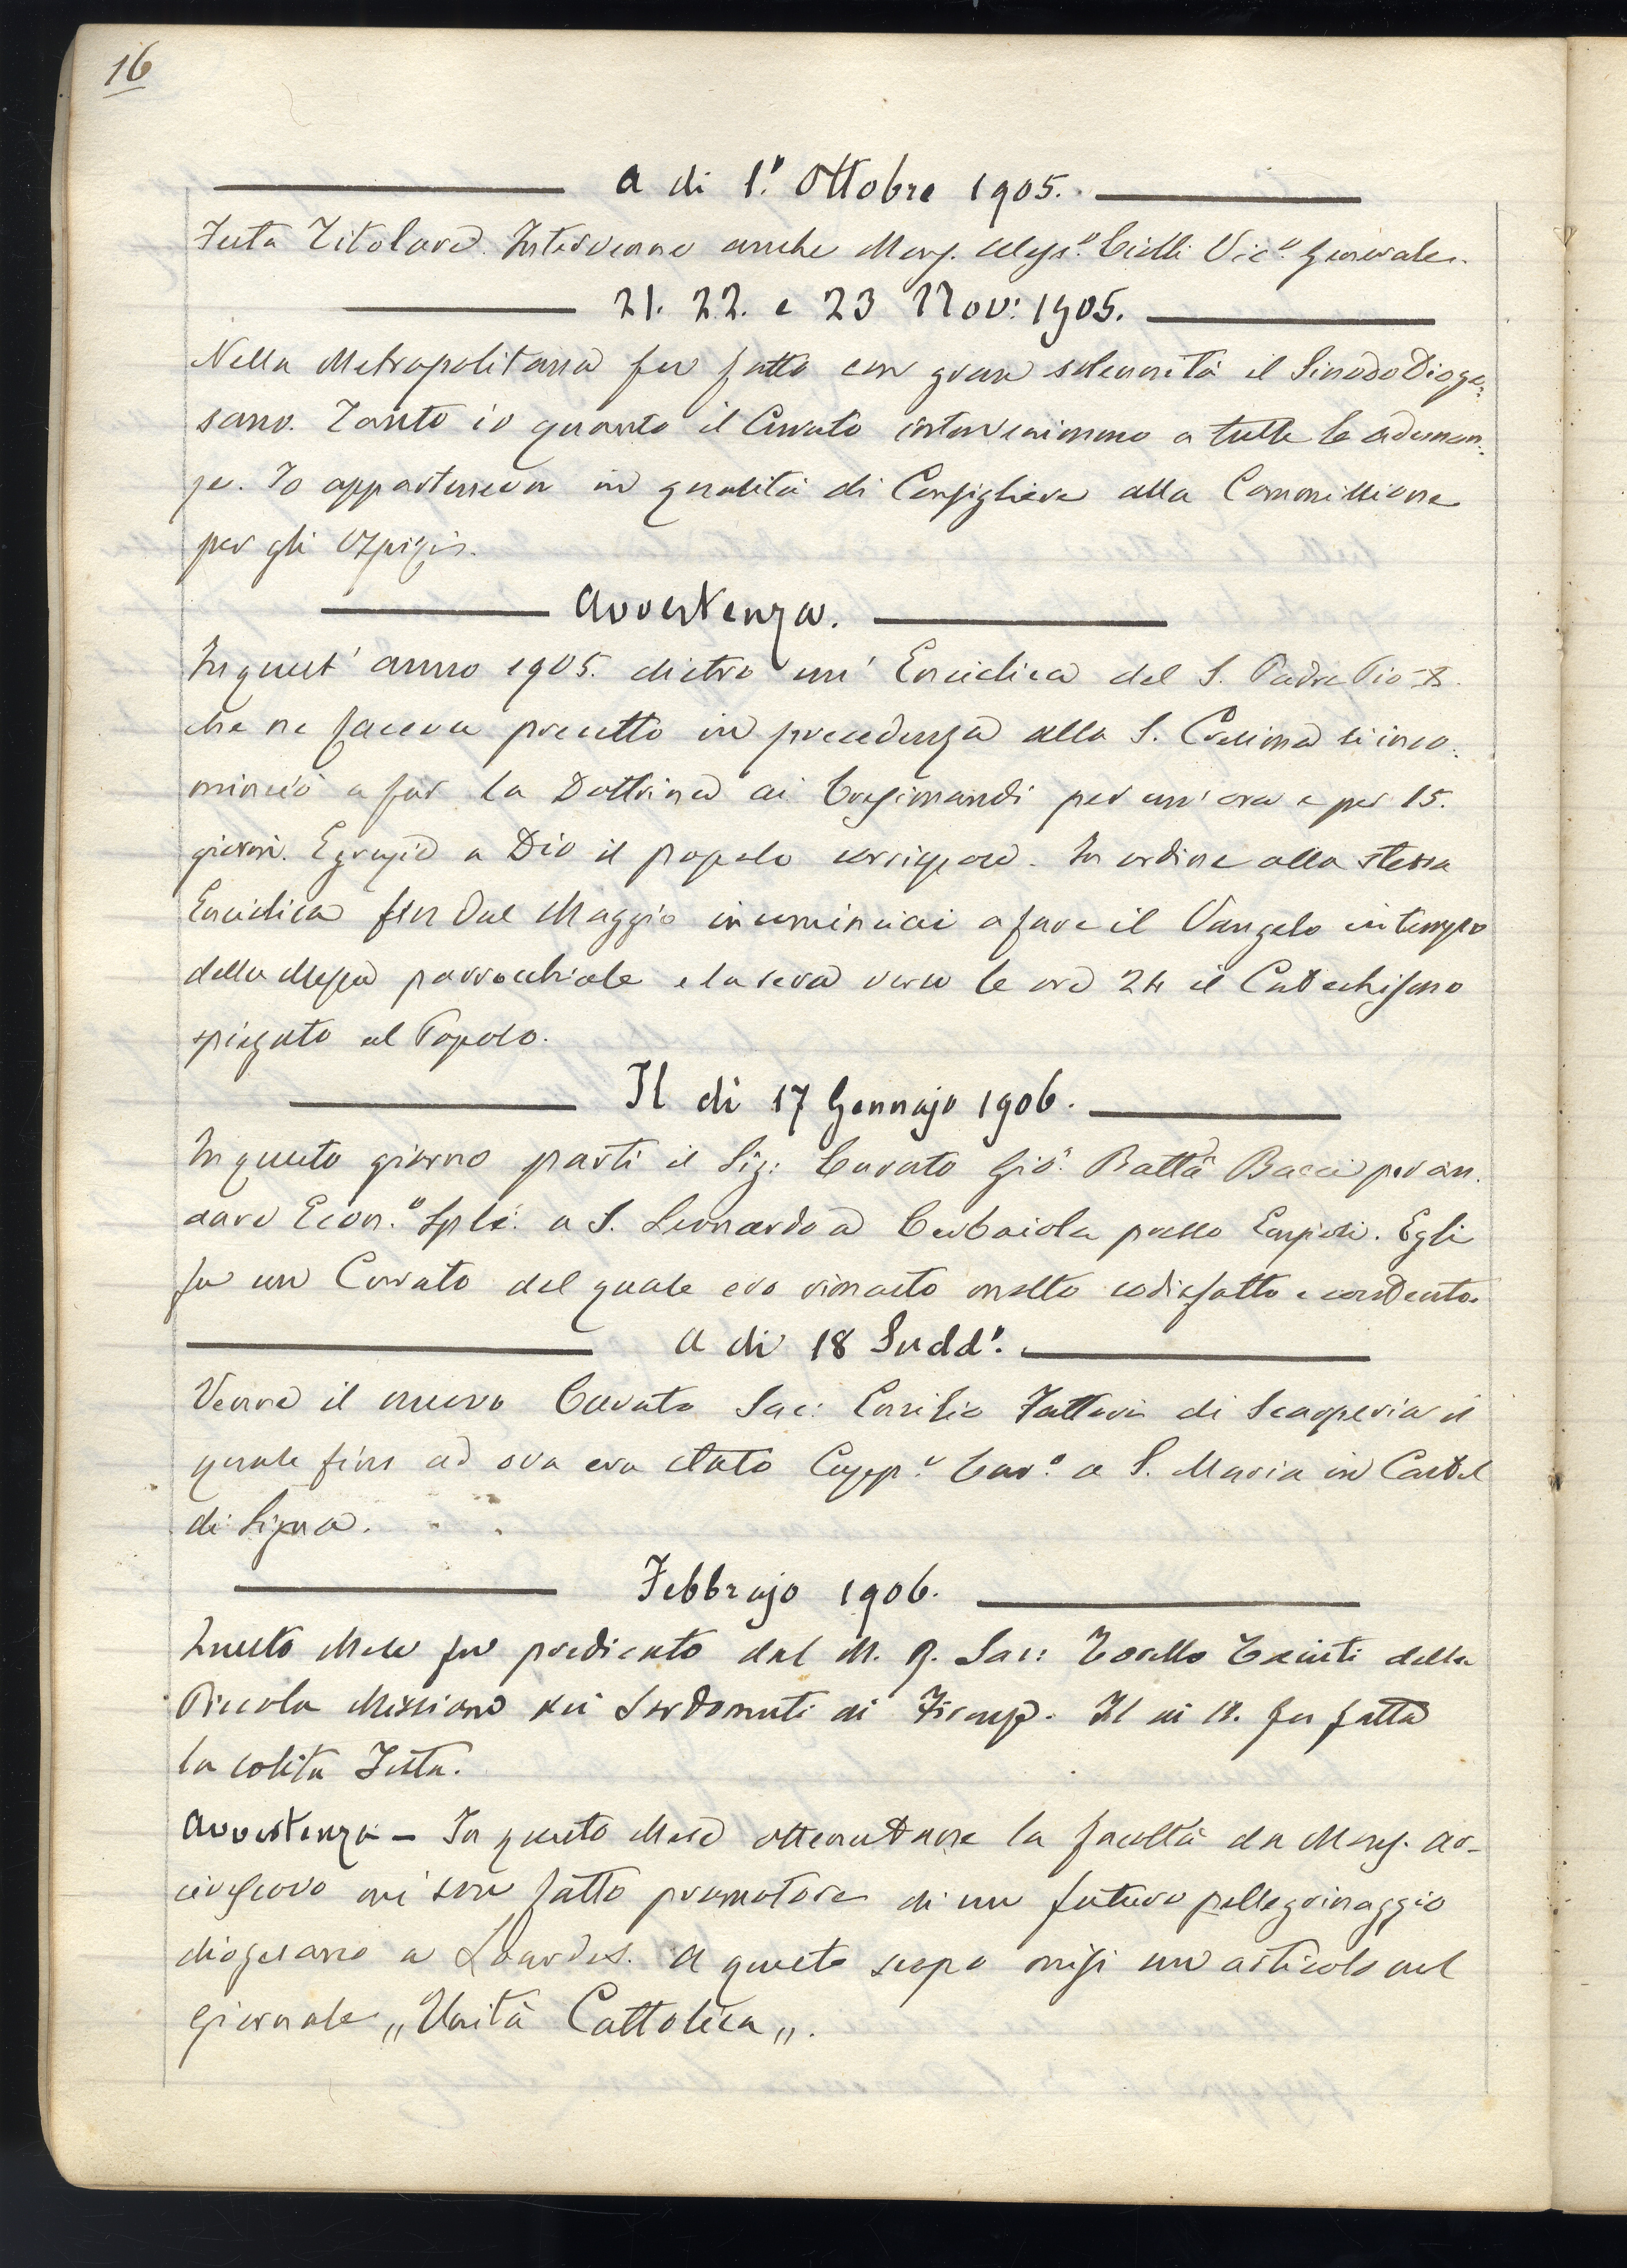 16
a dì 1.° Ottobre 1905.
Festa Titolare. Intervenne anche Mons. Aless.° Ciolli Vic.° Generale.
21. 22. e 23 Nov: 1905.
Nella Metropolitana fu fatto con gran solennità il Sinodo Dioge:
sano. Tanto io quanto il Curato intervenimmo a tutte le adunan:
ze. Io apparteneva in qualità di Consigliere alla Commissione
per gli Ospizi.
Avvertenza.
In quest' anno 1905. dietro un' Enciclica del S. Padre Pio X.
che ne faceva precetto in precedenza alla S. Cresima si inco:
minciò a far la Dottrina ai Cresimandi per un'ora e per 15.
giorni. E grazie a Dio il popolo corrispose. In ordine alla stessa
Enciclica fin dal Maggio incominciai a fare il Vangelo in tempo
della Messa parrocchiale e la sera verso le ore 24 il Catechismo
spiegato al Popolo.
Il dì 17 Gennajo 1906.
In questo giorno partì il Sig: Curato Gio: Batta Bacci per an:
dare Econ.° Sple: a S. Leonardo a Cerbaiola presso Empoli. Egli
fu un Curato del quale ero rimasto molto sodisfatto e contento.
A dì 18 Sudd°.
Venne il nuovo Curato Sac: Emilio Fattori di Scarperia il
quale fino ad ora era stato Capp.° Cur.° a S. Maria in Castel
di Signa.
Febbrajo 1906.
Questo Mese fu predicato dal M. R. Sac: Torello della
Piccola Missione dei Sordomuti di Firenze. Il dì 18. fu fatta
la solita Festa.
Avvertenza - In questo Mese ottenutane la facoltà da Mons. Ar-
civescovo mi son fatto promotore di un futuro pellegrinaggio
diogesano a Lourdes. A questo scopo misi un articolo nel
giornale „Unità Cattolica„.